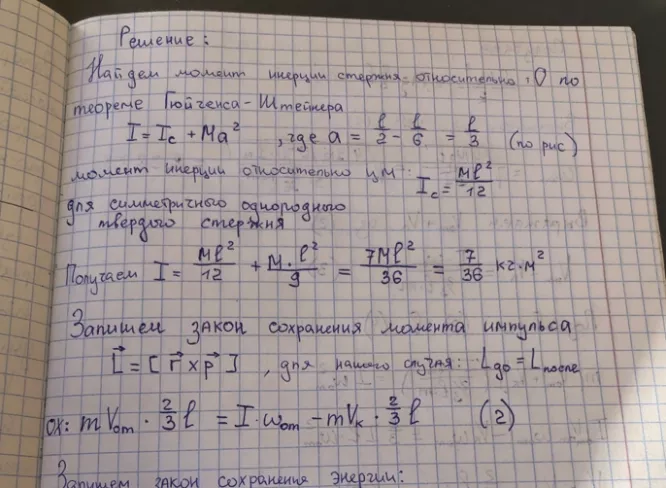 Решение:
Найдем момент инерции стержня относительно O по
теореме Гюйгенса-Штейнера
I = I_c + Ma², где a = l/2 - l/6 = l/3 (по рис)
момент инерции относительно ЦМ: I_c = Ml²/12
для симметричного однородного
твердого стержня
Получаем I = Ml²/12 + M·l²/9 = 7Ml²/36 = 7/36 кг·м²
Запишем закон сохранения момента импульса
L⃗ = [r⃗ × p⃗], для нашего случая: L до = L после
ox: mV_om · 2/3 l = I·ω_om - mV_k · 2/3 l (2)
Запишем закон сохранения энергии: